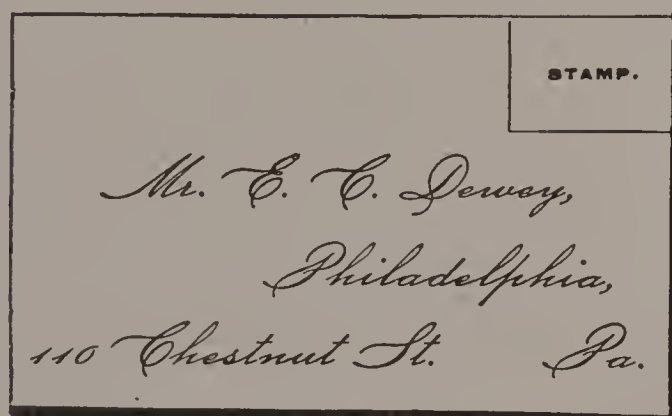 STAMP.
Mr. E. C. Dewey,
Philadelphia,
110 Chestnut St. Pa.